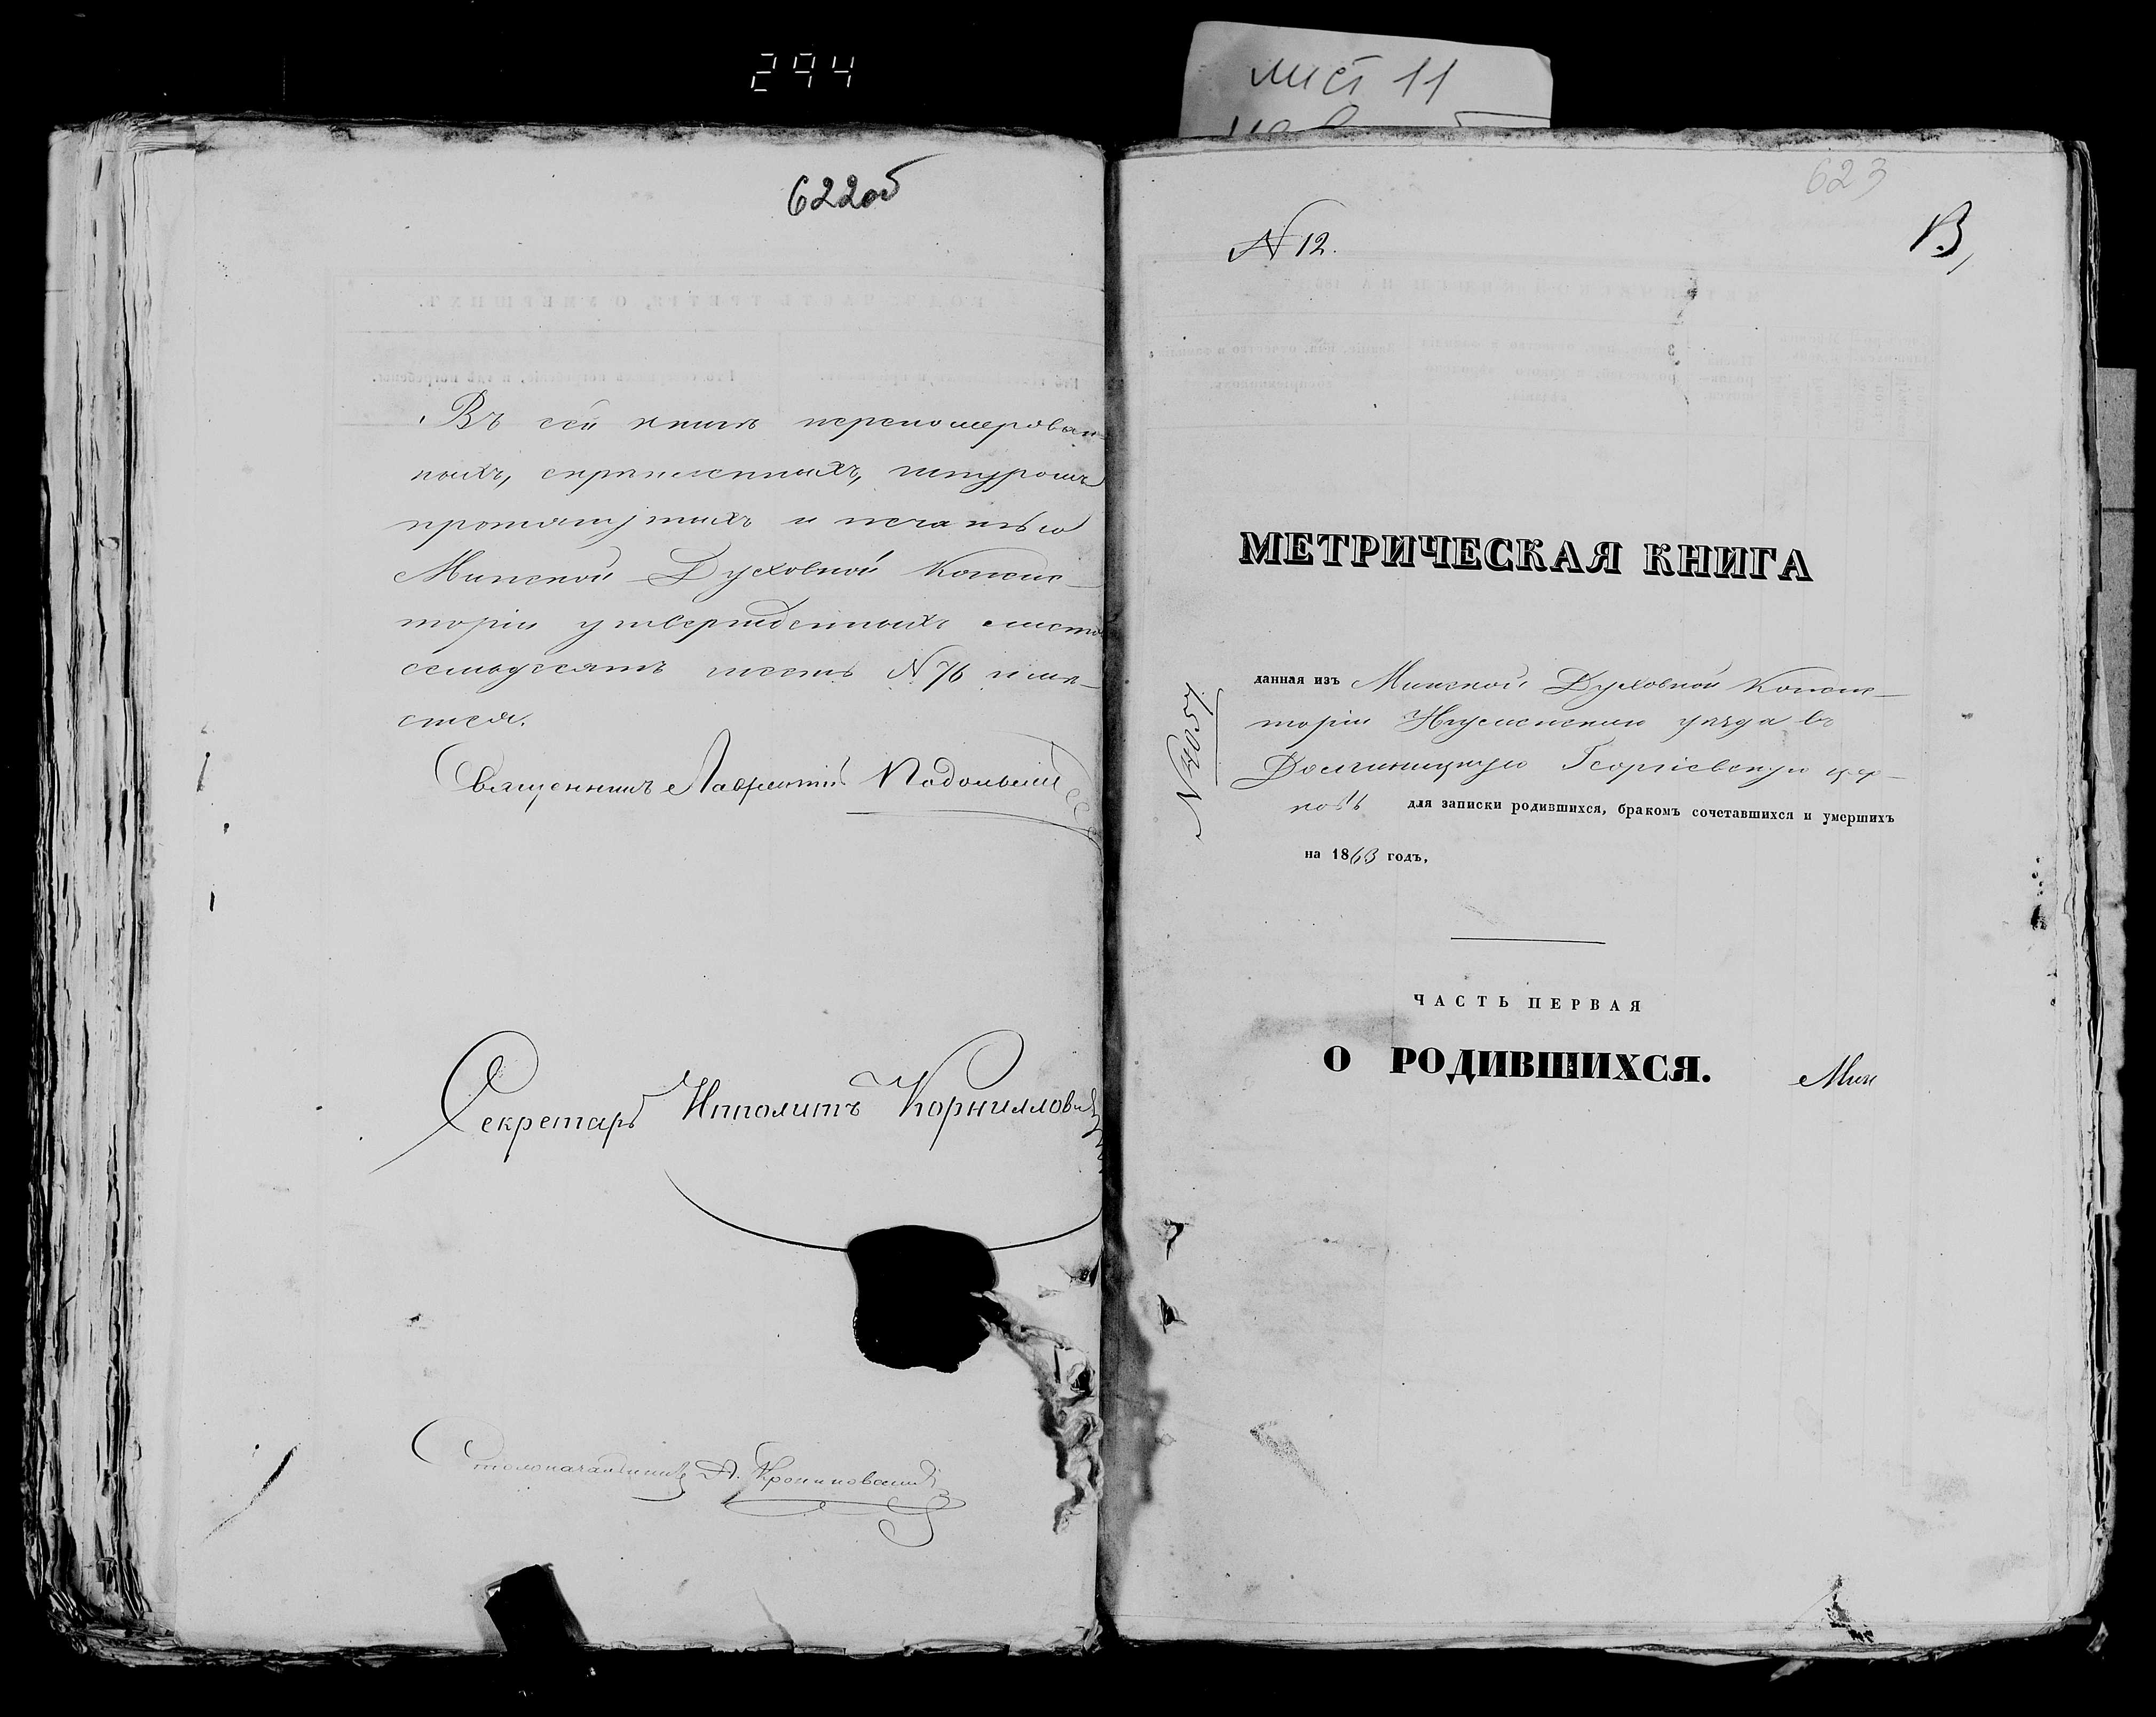 294
лист 11
622об
Въ сей книгѣ перенумерован-
ныхъ, скрѣпленныхъ, шнуромъ
протянутыхъ и печатью
Минской Духовной Консис-
торіи утвержденныхъ листовъ
семьдесятъ шесть N 76 имѣ-
ется.
Священникъ Лаврентій Подольскій
Секретарь Ипполитъ Корниллович
Столоначальникъ
623
N 12.
В,
МЕТРИЧЕСКАЯ КНИГА
N 4057
данная изъ Минской Духовной Консис-
торіи Игуменскаго уѣзда въ
Долгиницкую Георгіевскую цер-
ковь для записки родившихся, бракомъ сочетавшихся и умершихъ
на 1863 годъ,
ЧАСТЬ ПЕРВАЯ
О РОДИВШИХСЯ.
Мин